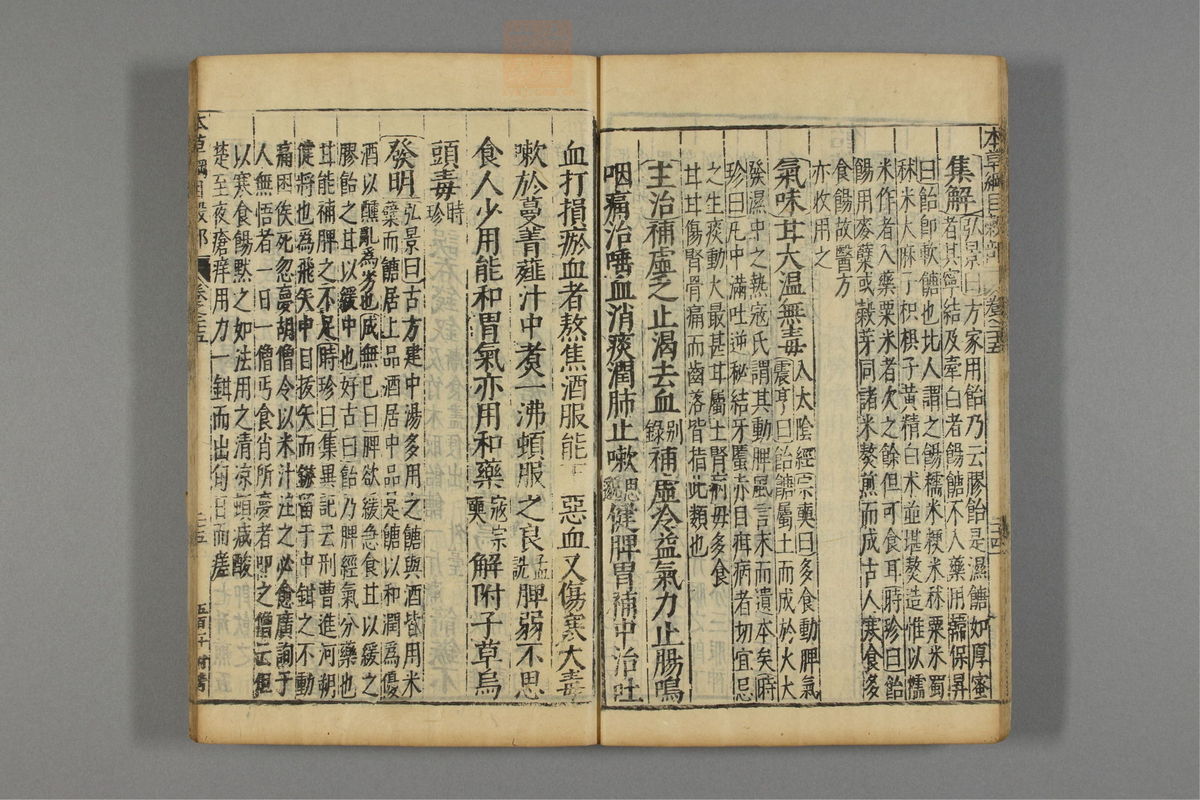 本草綱目穀部 卷之二十五 二十四
集解 弘景曰方家用飴乃云膠飴是濕糖如厚蜜
者其寧結及牽白者餳糖不入藥用韓保昇
曰飴即軟糖也北人謂之餳糯米粳米秫粟米蜀
秫米大麻子枳椇子黃精白朮並堪熬造惟以糯
米作者入藥粟米者次之餘但可食耳時珍曰飴
餳用麥蘗或穀芽同諸米熬煎而成古人寒食多
食餳故醫方
亦收用之
氣味 甘大温無毒 入太陰經宗奭曰多食動脾氣
震亨曰飴糖屬土而成於火大
發濕中之熱寇氏謂其動脾風言末而遺本矣時
珍曰凡中滿吐逆秘結牙䘌赤目疳病者切宜忌
之生痰動火最甚甘屬土腎病毋多食
甘甘傷腎骨痛而齒落皆指此類也
主治 補虛乏止渴去血 别錄 補虛冷益氣力止腸鳴
咽痛治唾血消痰潤肺止嗽 思邈 健脾胃補中治吐
血打損瘀血者熬焦酒服能下惡血又傷寒大毒
嗽於蔓菁薤汁中煑一沸頓服之良 孟詵 脾弱不思
食人少用能和胃氣亦用和藥 寇宗奭 解附子草烏
頭毒 時珍
發明 弘景曰古方建中湯多用之糖與酒皆用米
蘗而糖居上品酒居中品是糖以和潤為優
酒以醺亂為劣也成無己曰脾欲緩急食甘以緩之
膠飴之甘以緩中也好古曰飴乃脾經氣分藥也
甘能補脾之不足時珍曰集異記云刑曹進河朔
健將也為飛矢中目拔矢而鏃留于中鉗之不動
痛困俟死忽夢胡僧令以米汁注之必愈廣詢于
人無悟者一日一僧丐食肖所夢者叩之僧云但
以寒食餳點之如法用之清涼頓減酸
楚至夜瘡痒用力一鉗而出旬日而瘥
本草綱目穀部 卷之二十五 二十五